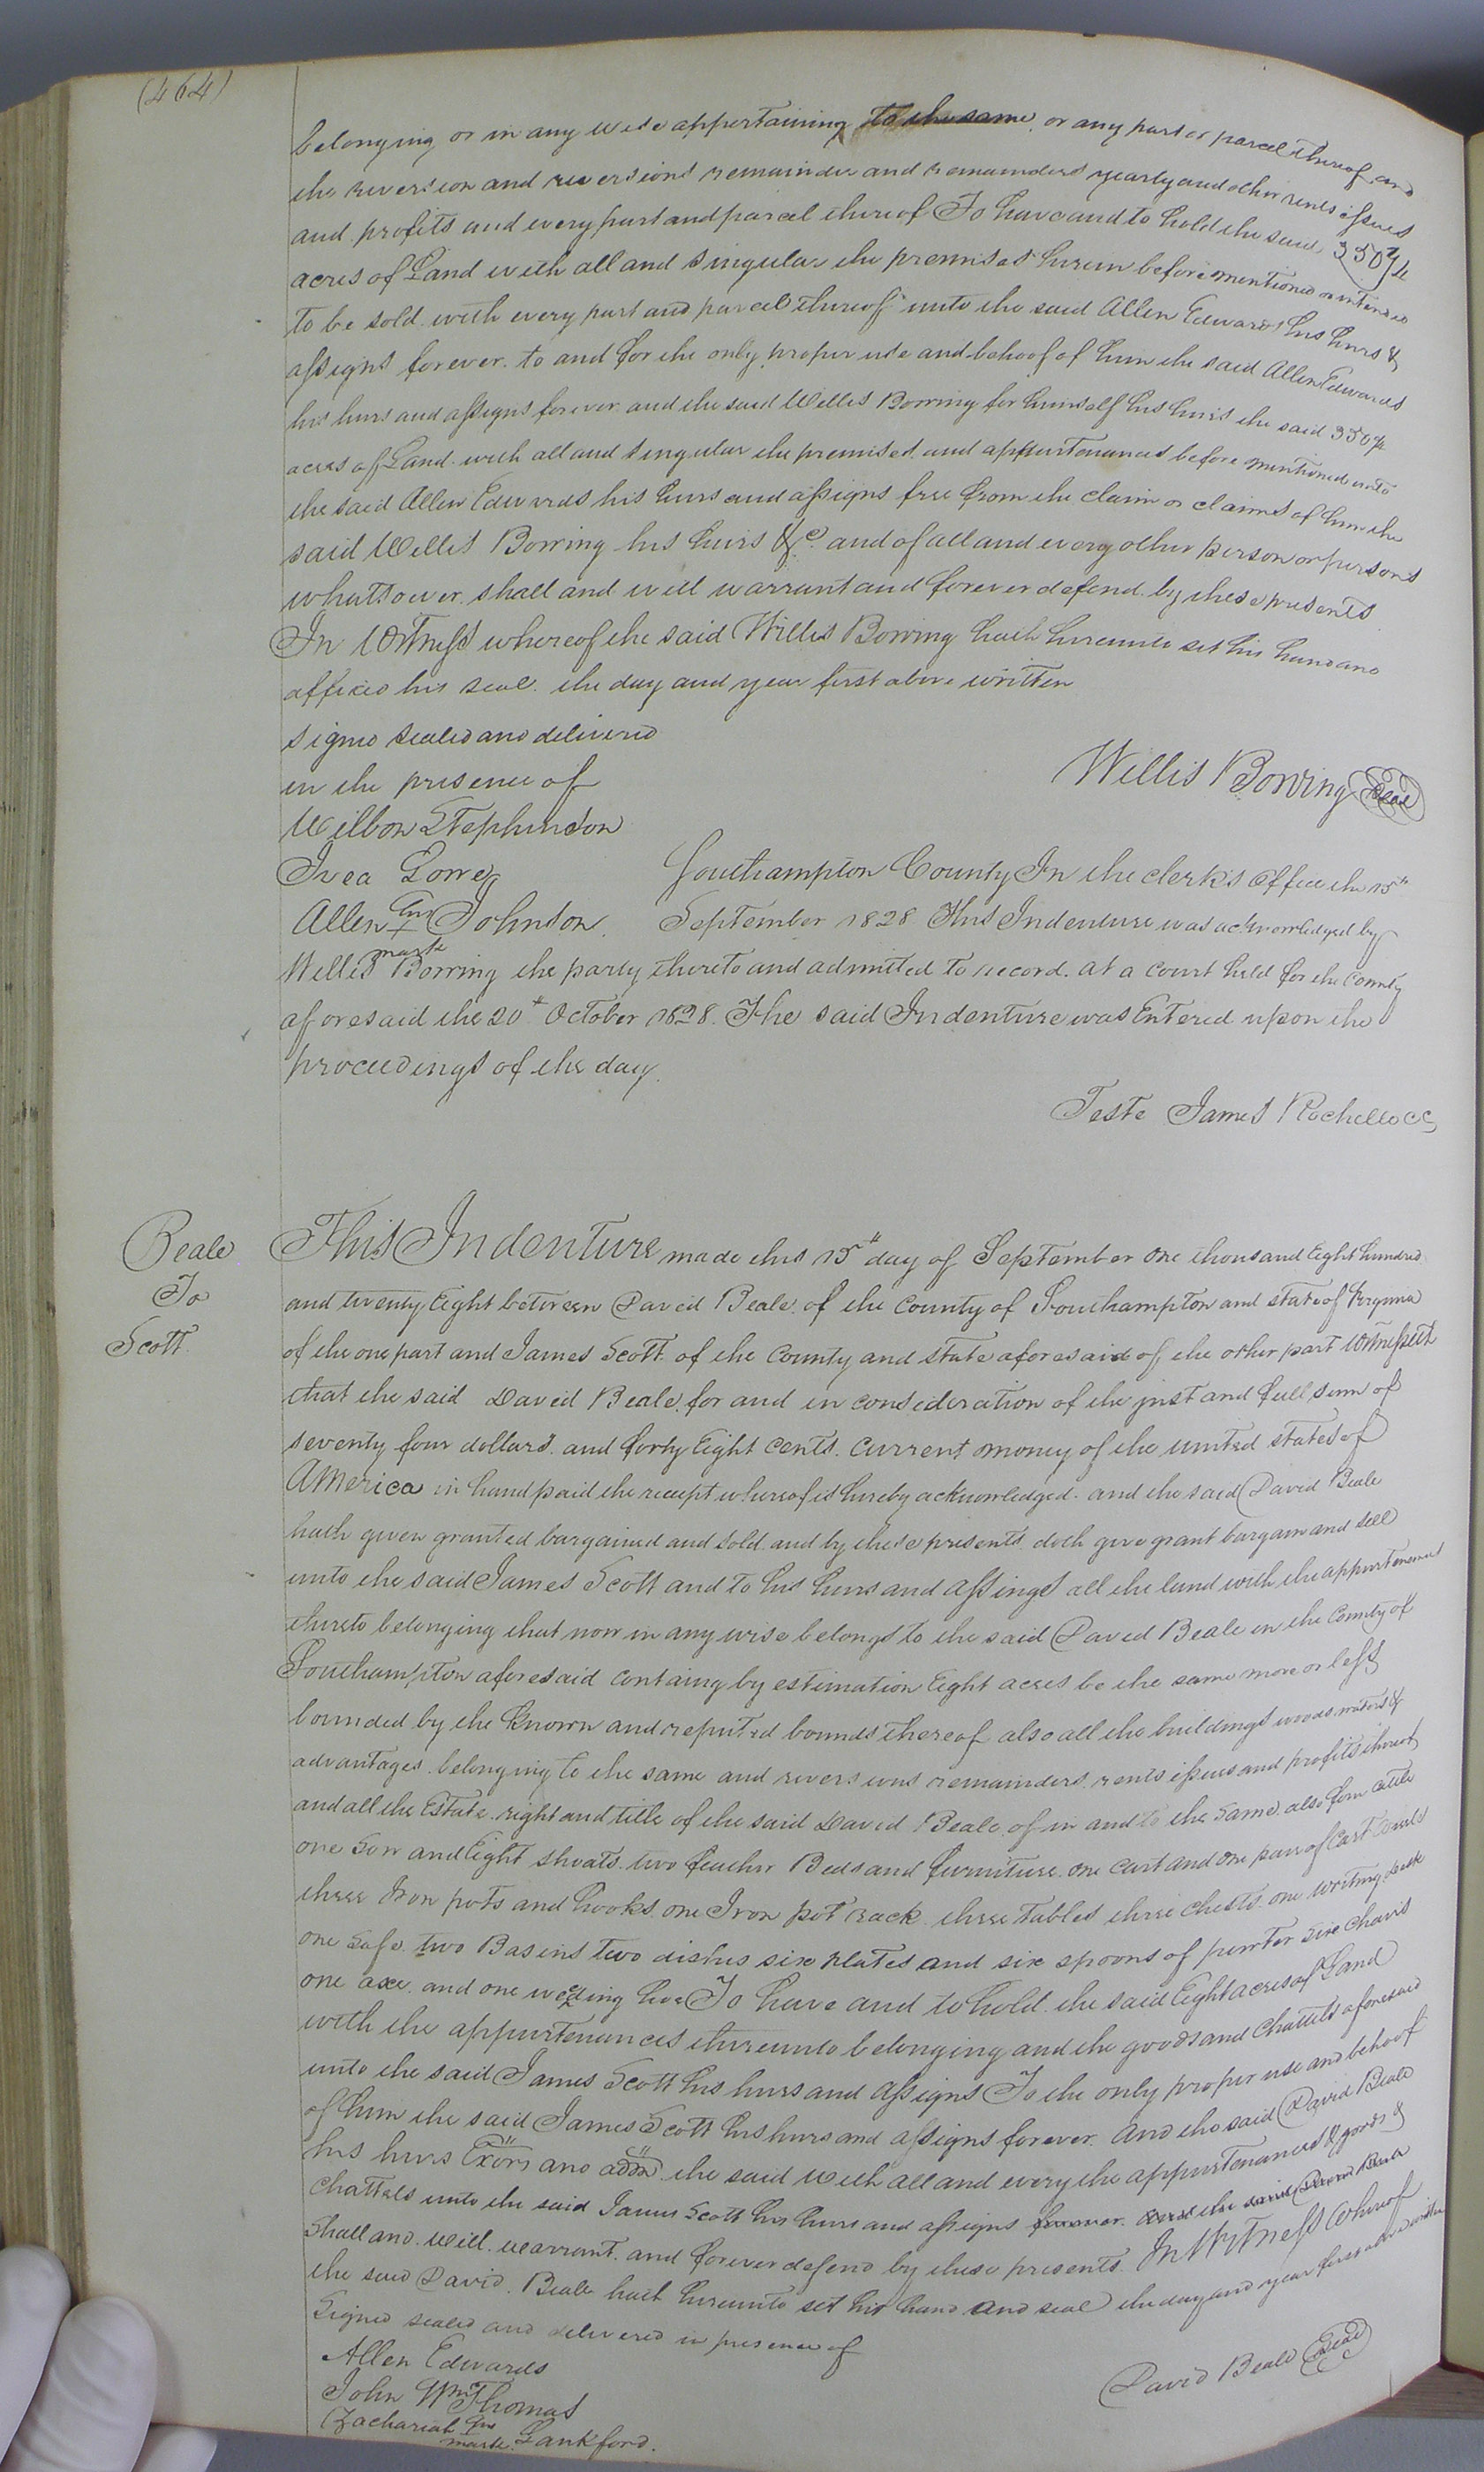 (464)
belonging or in any wise appertaining to the same, or any part or parcel thereof and
the reversion and reversions remainder and remainders yearly and other rents issues
and profits and every part and parcel thereof To have and to hold the said 350¾
acres of Land with all and singular the premises herein before mentioned or intended
to be sold with every part and parcel thereof unto the said Allen Edwards his heirs &
assigns forever. to and for the only proper use and behoof of him the said Allen Edwards
his heirs and assigns forever and the said Willis Bowing for himself his heirs the said 350¾
acres of Land with all and singular the premises and appurtenances before mentioned unto
the said Allen Edwards his heirs and assigns free from the claim or claims of him the
said Willis Bowing his heirs &c. and of all and every other person or persons
whatsoever shall and will warrant and forever defend by these presents
In Witness whereof the said Willis Bowing hath hereunto set his hand and
affixed his seal. the day and year first above written
signed sealed and delivered
in the presence of
Willis Bowing Seal
Wilbon Stephenson
Ivea Lowe
Southampton County In the clerk's office the 15th
Allen his + mark Johnson.
September 1828 This Indenture was acknowledged by
Willis Bowing the party thereto and admitted to record. at a court held for the County
aforesaid the 20th October 1828. The said Indenture was Entered upon the
proceedings of the day.
Teste James Rochelle CC
Beale
To
Scott.
This Indenture made this 15th day of September one thousand Eight hundred
and twenty Eight between David Beale. of the County of Southampton and state of Virginia
of the one part and James Scott. of the County and state aforesaid of the other part Witnesseth
that the said David Beale. for and in consideration of the just and full sum of
seventy four dollars. and forty Eight cents. current money of the united states of
America in hand paid the receipt whereof is hereby acknowledged. and the said David Beale
hath given granted bargained and sold and by these presents doth give grant bargain and sell
unto the said James Scott and to his heirs and assings all the land with the appurtenances
thereto belonging that now in any wise belongs to the said David Beale in the County of
Southampton aforesaid containg by estimation Eight acres be the same more or less
bounded by the known and reputed bounds thereof also all the buildings woods waters &
advantages belonging to the same and reversions remainders rents issues and profits thereof
and all the Estate right and title of the said David Beale of in and to the same. also four cattle
one Sow and Eight shoats two feather Beds and furniture. one cart and one pair of Cart wheels
three Iron pots and hooks one Iron pot rack three tables three chests one writing desk
one safe two Basins two dishes six plates and six spoons of pewter six chairs
one axe. and one weeding hoe To have and to hold. the said Eight acres of Land
with the appurtenances thereunto belonging and the goods and chattels aforesaid
unto the said James Scott his heirs and assigns To the only proper use and behoof
of him the said James Scott his heirs and assigns forever. And the said David Beale
his heirs Exors and adms. the said with all and every the appurtenances & goods &
chattels unto the said James Scott his heirs and assigns forever. And the said David Beale
Shall and will warrant and forever defend by these presents. In Witness whereof
the said David Beale hath hereunto set his hand and seal the day and year first above written
Signed sealed and delivered in presence of
Allen Edwards
David Beale Seal
John Wm Thomas
Zachariah his mark Lankford.